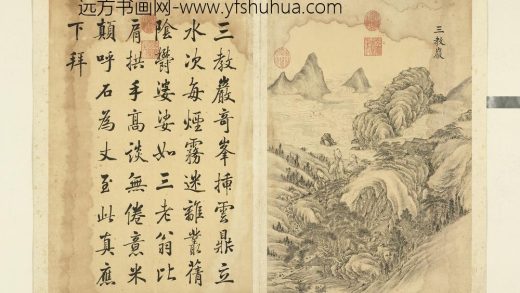 远方书画网-www.yfshuhua.com
三教巖
三教巖奇峯插雲鼎立
水次每煙霧迷離叢蒨
陰欝婆娑如三老翁比
肩拱手高談無倦意米
顛呼石為丈至此真應
下拜